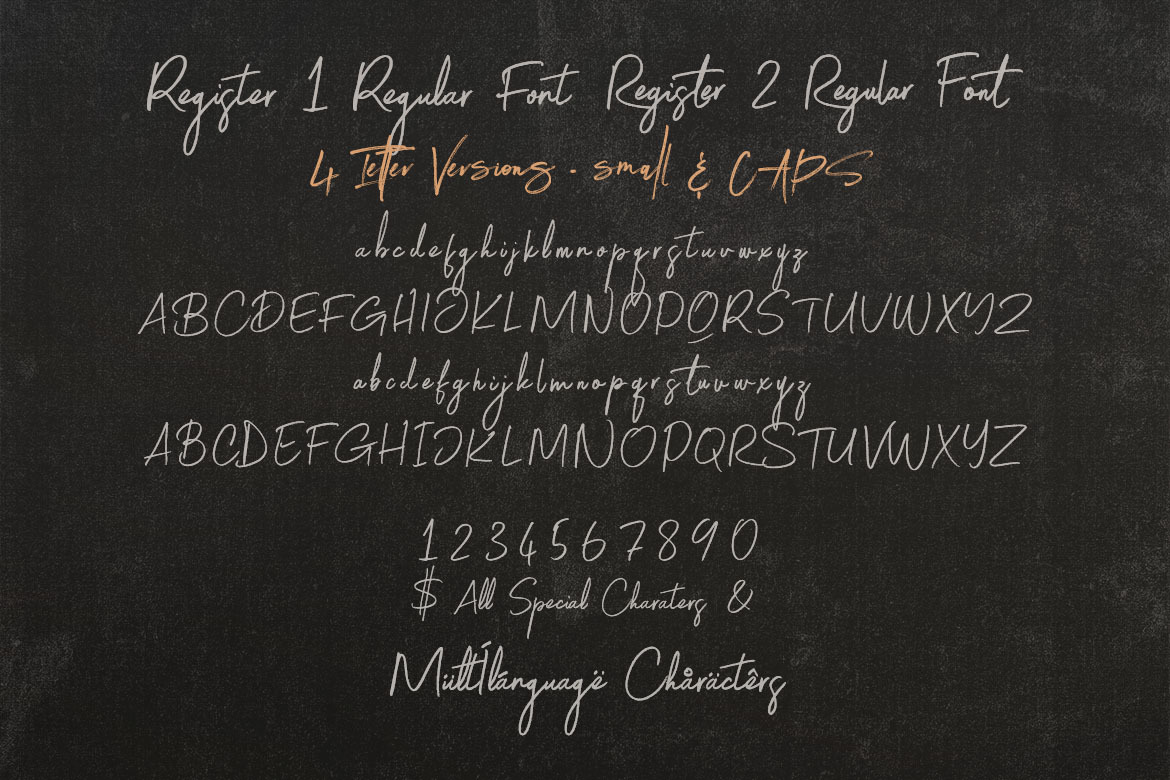 Register 1 Regular Font Register 2 Regular Font
4 letter Versions - small & CAPS
abcdefghijklmnopqrstuvwxyz
ABCDEFGHIJKLMNOPQRSTUVWXYZ
abcdefghijklmnopqrstuvwxyz
ABCDEFGHIJKLMNOPQRSTUVWXYZ
1234567890
$ All Special Charaters &
Mültílánguagë Chåräctêrs